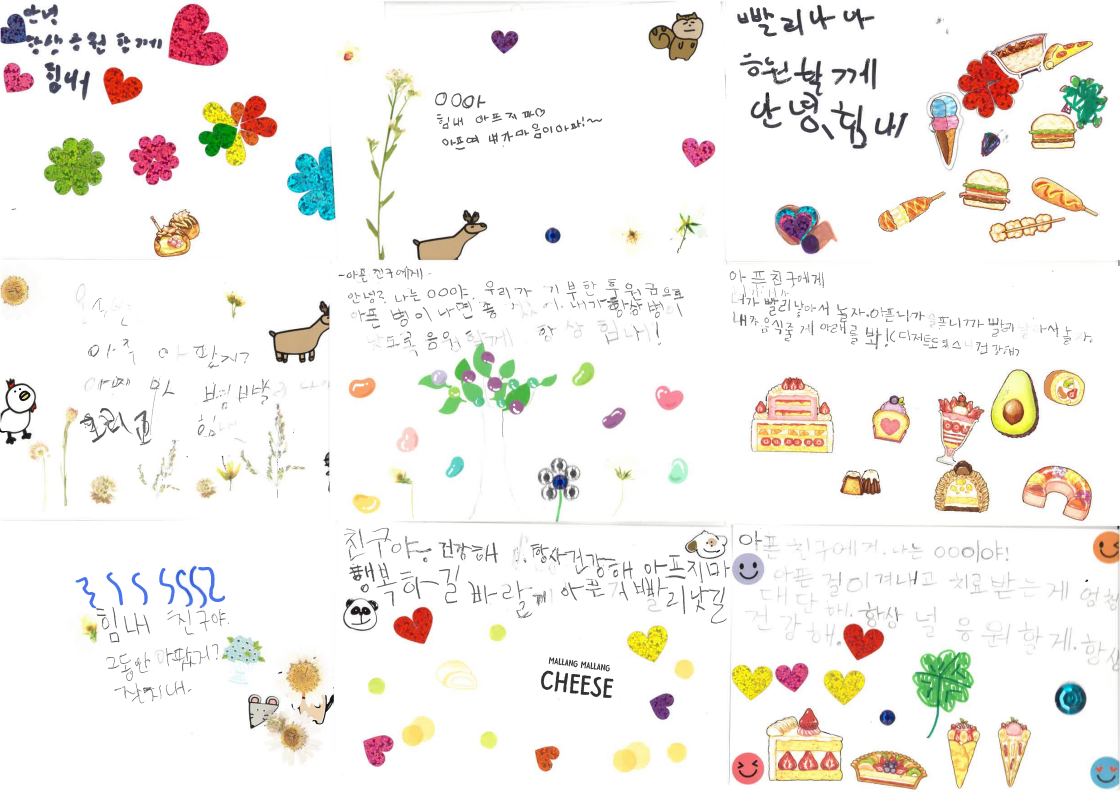 안녕
항상 응원 함께
힘내
OOO아
힘내 아프지마
아프면 내가 마음이 아파!~
빨리 나 나
응원할게
안녕, 힘내
아직 아팠지?
힘내
-아픈 친구에게-
안녕? 나는 OOO야. 우리가 기부한 후원금으로
아픈 병이 나면 좋겠어. 내가 항상 병이
낫도록 응원할게 항상 힘내!
아픈친구에게
너가 빨리 낳아서 놀자. 아프니까 슬프니까 빨리
내가 음식줄게 아래를 봐!
힘내 친구야.
그동안 아팠지?
잘지내.
친구야~ 건강해 항상건강해 아프지마
행복하길 바랄게 아픈거 빨리낫길
MALLANG MALLANG
CHEESE
아픈 친구에게. 나는 OOO이야!
아픈 걸 이겨내고 치료받는게
대단해. 항상 널 응원할게. 항상
건강해.